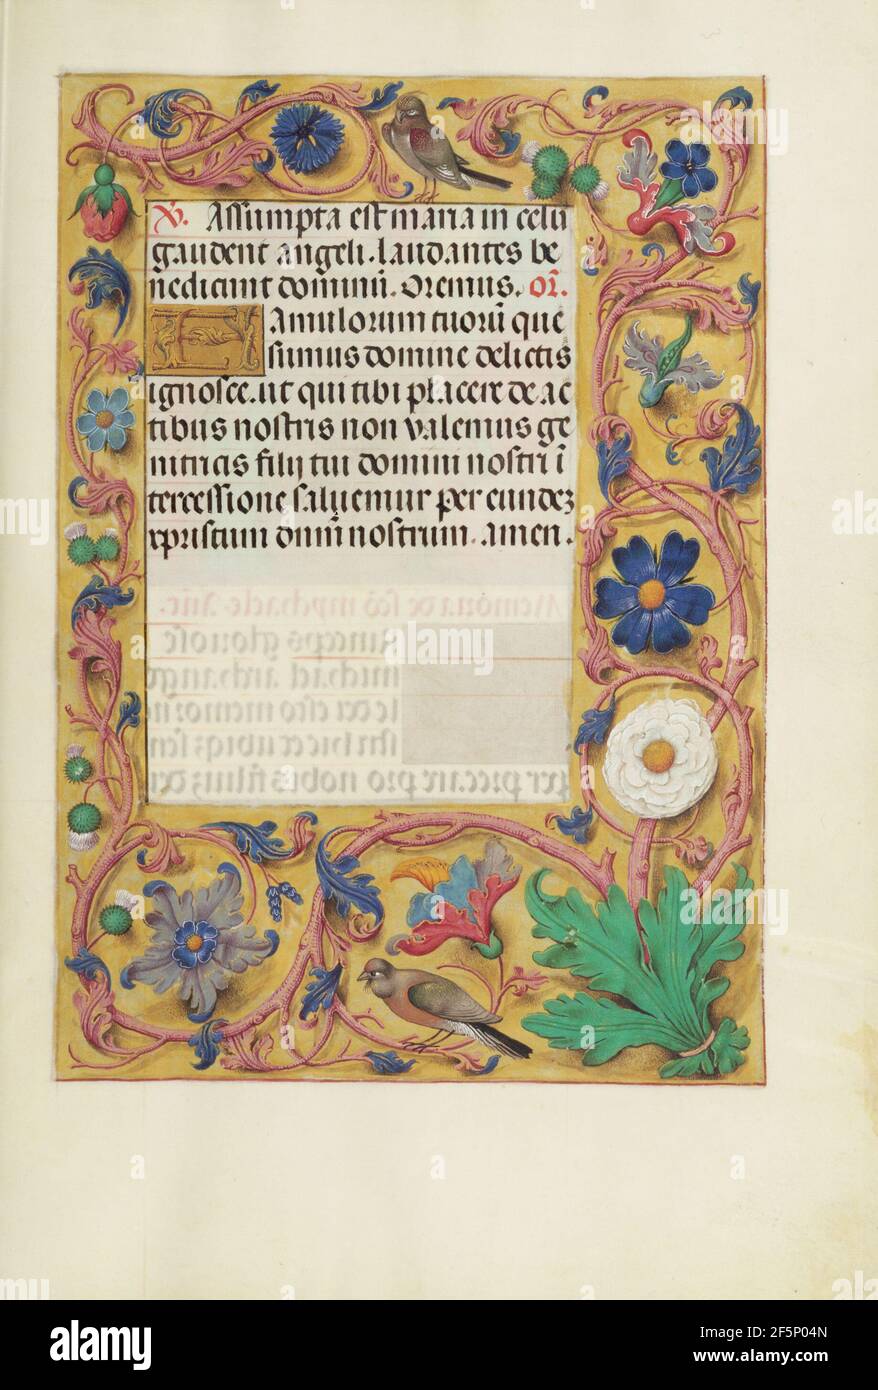 V. Assumpta est maria in celū
gaudent angeli. laudantes be
nedicunt dominū. Oremus. or̄.
Famulorum tuorū que
sumus domine delictis
ignosce. ut qui tibi placere de ac
tibus nostris non valemus ge
nitricis filij tui domini nostri ī
tercessione saluemur per eundez
xpristum dnm̄ nostrum. amen.
alamy
Image ID: 2F5P04N
www.alamy.com